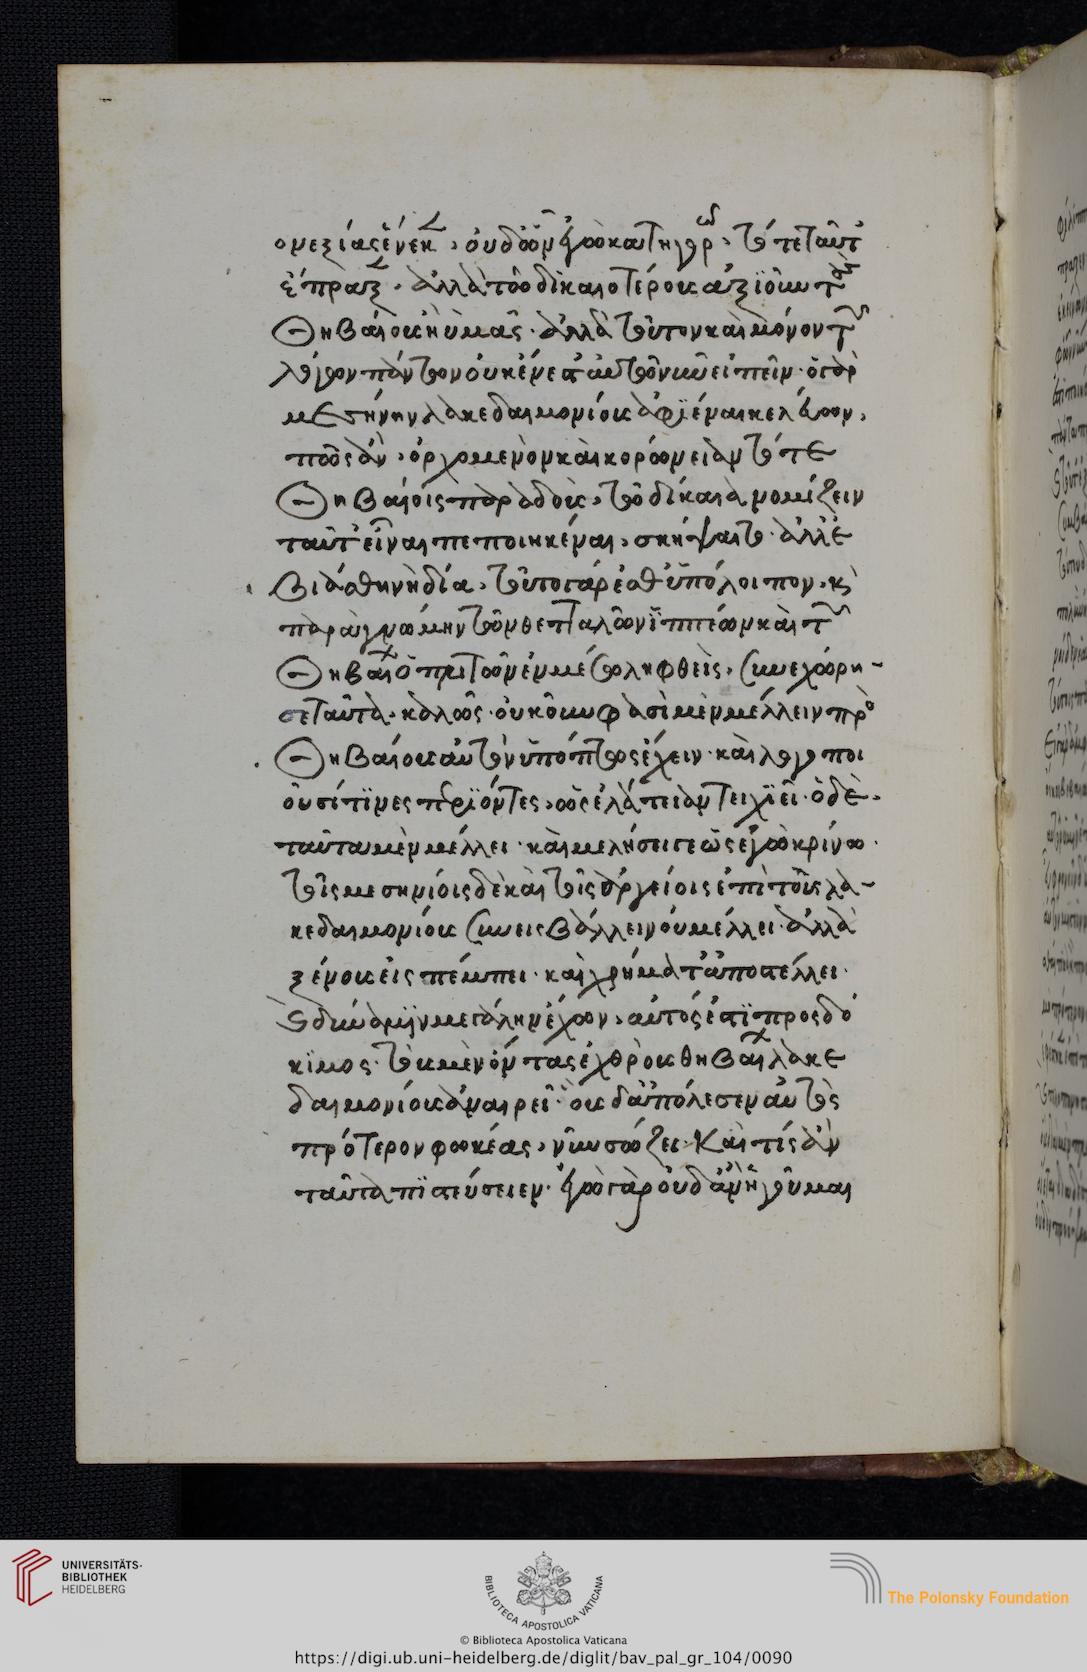 ονεξίας ἕνεκ, οὐδ' ὧν ἐγὼ κατηγορῶ, τότε ταῦτ'
ἔπραξεν. ἀλλὰ τῶ δικαιοτέρους ἀξιοῦν τοὺς
Θηβαίους ἢ ὑμᾶς. ἀλλὰ τοῦτον καὶ μόνον τῶν
λόγων πάντων οὐκ ἔνεστ' αὐτῶ νῦν εἰπεῖν. ὁ γὰρ
μεσήνην λακεδαιμονίους ἀφιέναι κελεύων,
πῶς ἂν, ὀρχομενὸν καὶ κορώνειαν τότε
Θηβαίοις παραδοὺς, τῶ δίκαια νομίζειν
ταῦτ' εἶναι πεποιηκέναι, σκήψαιτο. ἀλλ' ἐ
βιάσθη νὴ δία, τοῦτο γάρ ἐσθ' ὑπόλοιπον, κὶ
παρὰ γνώμην τῶν θετταλῶν ἱππέων καὶ τῶν
Θηβαίων ὁπλιτῶν ἐν μέσω ληφθεὶς, συνεχώρη-
σε ταῦτα. καλῶς. οὐκοῦν φασὶ μὲν μέλλειν πρὸς
Θηβαίους αὐτὸν ὑπόπτως ἔχειν. καὶ λογοποι
οῦσί τινες περιιόντες, ὡς ἐλάτειαν τειχιεῖ. ὁ δὲ,
ταῦτα μὲν μέλλει. καὶ μελήσει γε ὡς ἐγὼ κρίνω.
τοῖς μεσηνίοις δὲ καὶ τοῖς ἀργείοις ἐπὶ τοὺς λα-
κεδαιμονίους συνεισβάλλειν οὐ μέλλει. ἀλλὰ
ξένους εἰσπέμπει. καὶ χρήματ' ἀποστέλλει.
καὶ δύναμιν μεγάλην ἔχων, αὐτός ἐστι προσδό
κιμος. τοὺς μὲν ὄντας ἐχθροὺς θηβαίων λακε
δαιμονίους ἀναιρεῖ. οὓς δ' ἀπόλεσεν αὐτὸς
πρότερον φωκέας, νῦν σώζει. Καὶ τίς ἂν
ταῦτα πιστεύσειεν. ἐγὼ γὰρ οὐδ' ἂν ἡγοῦμαι
UNIVERSITÄTS-
BIBLIOTHEK
HEIDELBERG
BIBLIOTECA APOSTOLICA VATICANA
The Polonsky Foundation
© Biblioteca Apostolica Vaticana
https://digi.ub.uni-heidelberg.de/diglit/bav_pal_gr_104/0090